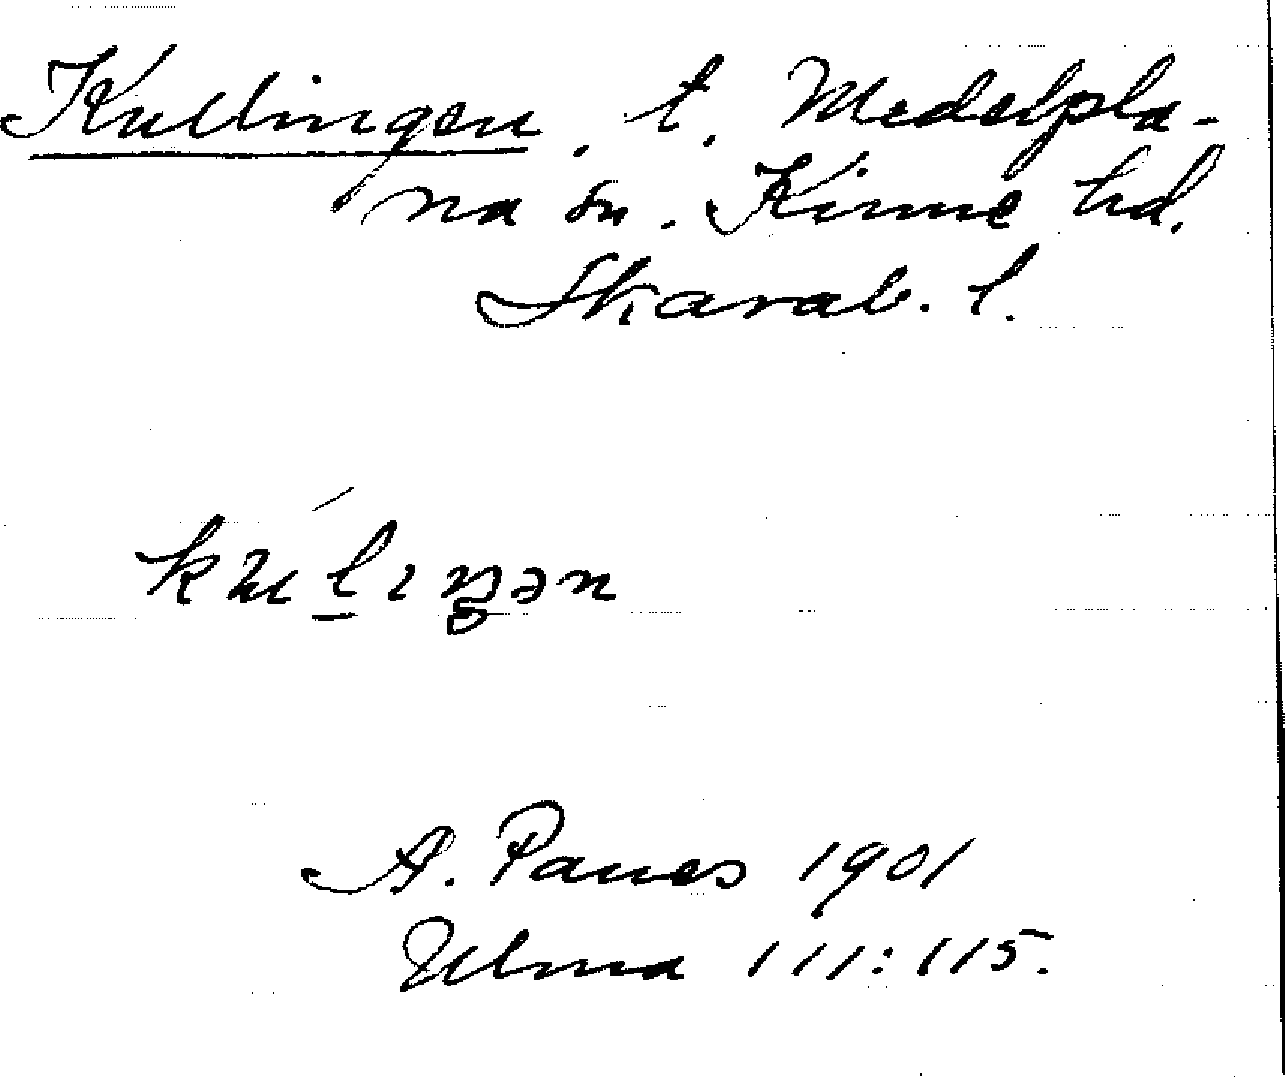 Kullingen. t. Medelpla-
na sn. Kinne hd.
Skarab. l.
A. Paues 1901
Ulma 111:115.